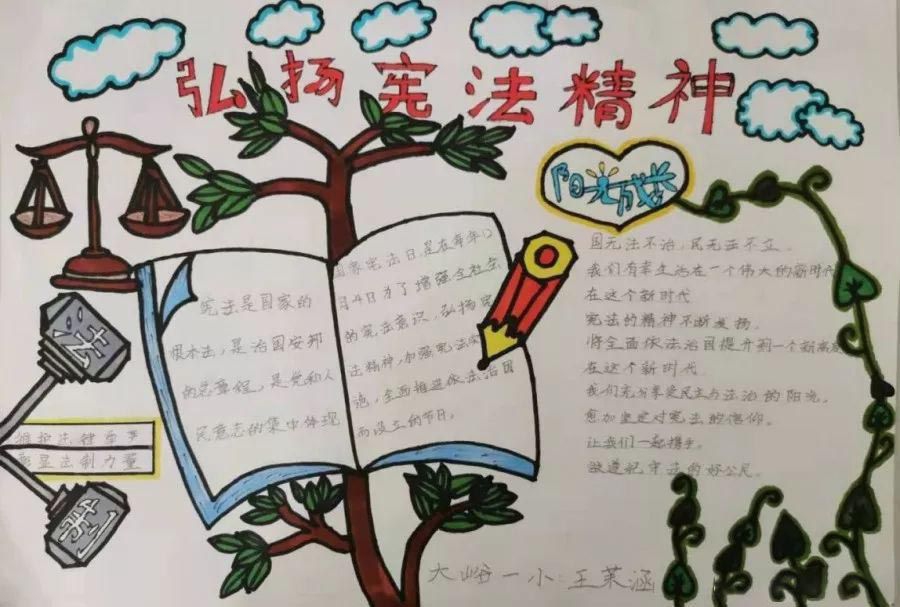 弘扬宪法精神
阳光成长
宪法是国家的
根本法,是治国安邦
的总章程,是党和人
民意志的集中体现
国家宪法日,是在每年12
月4日为了增强全社会
的宪法意识,弘扬宪
法精神,加强宪法实
施,全面推进依法治国
而设立的节日。
国无法不治,民无法不立。
我们有幸生活在一个伟大的新时代
在这个新时代
宪法的精神不断发扬。
将全面依法治国提升到一个新高度
在这个新时代
我们充分享受民主与法治的阳光。
愈加坚定对宪法的信仰。
让我们一起携手。
做遵纪守法的好公民。
法
维护法律尊严
彰显法制力量
制
大峪一小:王茉涵